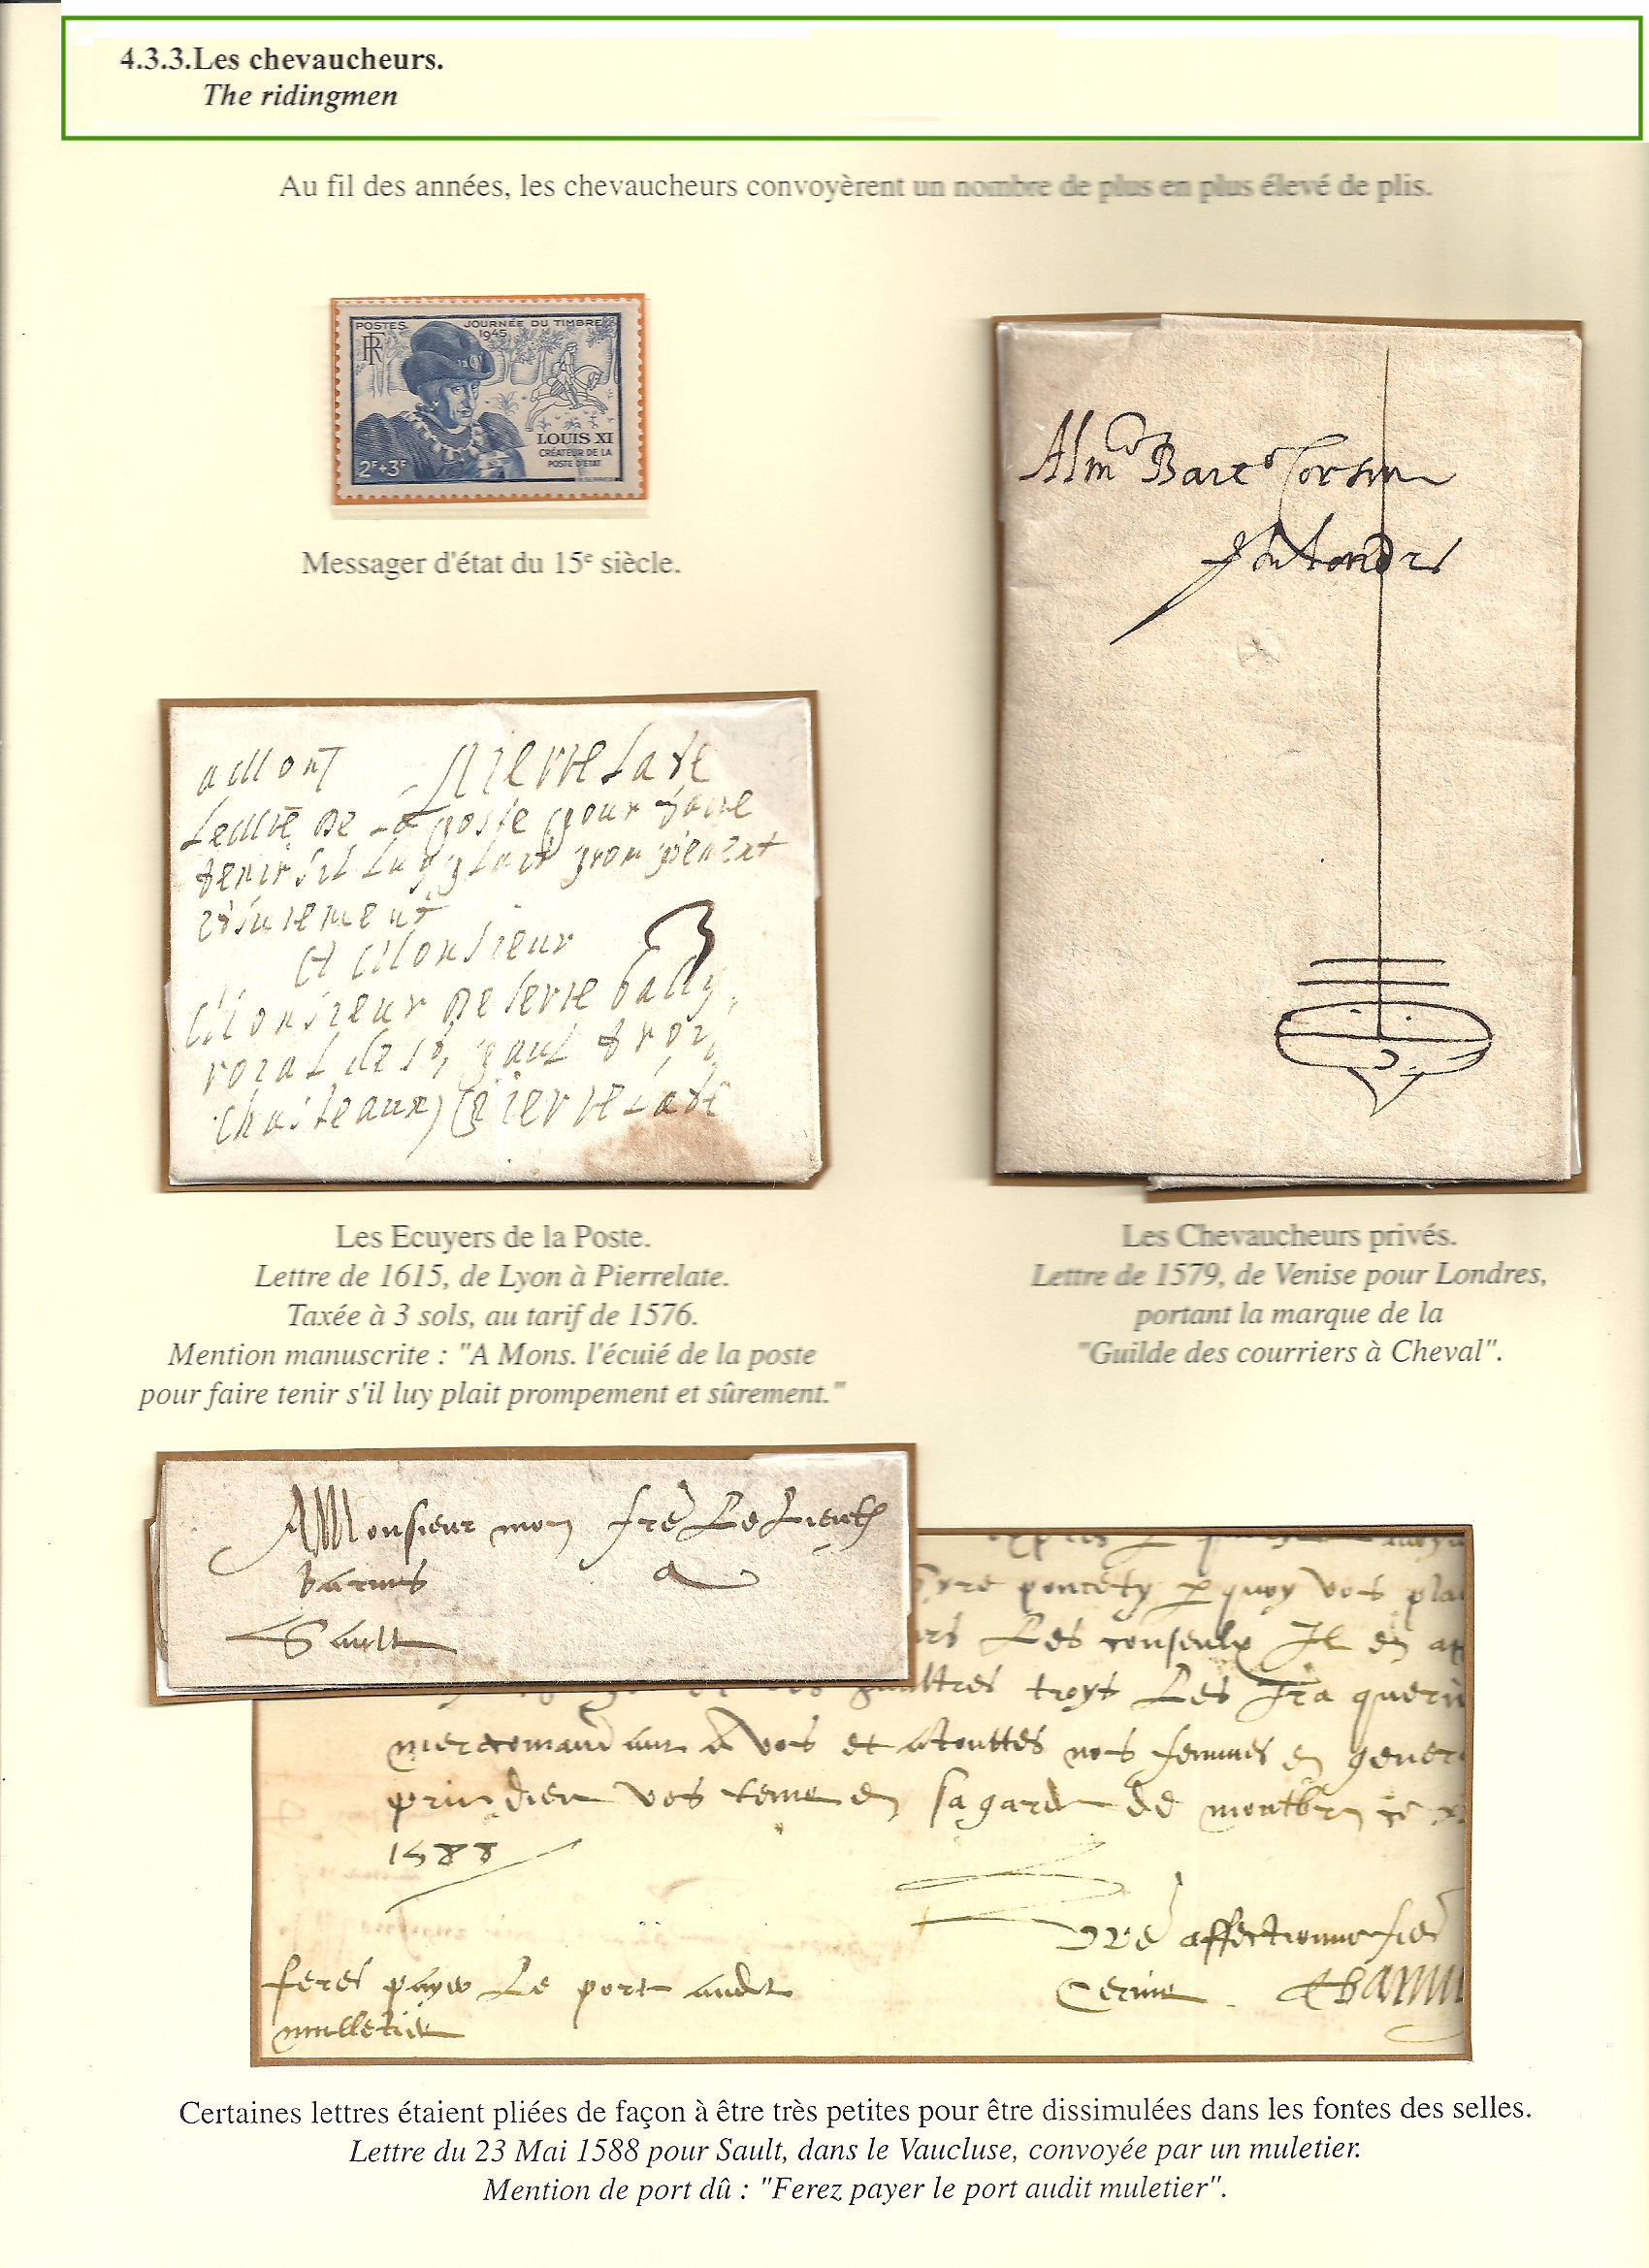 4.3.3.Les chevaucheurs.
The ridingmen
Au fil des années, les chevaucheurs convoyèrent un nombre de plus en plus élevé de plis.
POSTES
JOURNÉE DU TIMBRE
1945
RF
LOUIS XI
CRÉATEUR DE LA
POSTE D'ETAT
2F+3F
Messager d'état du 15e siècle.
Londres
Pierre Late
de La poste pour faire
tenir sil Luy plait prompement
et surement
A Monsieur
3
Monsieur de serre bally
roial de st paul troy
chasteaux) Pierre Late
Les Ecuyers de la Poste.
Lettre de 1615, de Lyon à Pierrelate.
Taxée à 3 sols, au tarif de 1576.
Mention manuscrite : "A Mons. l'écuié de la poste
pour faire tenir s'il luy plait prompement et sûrement."
Les Chevaucheurs privés.
Lettre de 1579, de Venise pour Londres,
portant la marque de la
"Guilde des courriers à Cheval".
A Monsieur mon frè Le
a
Sault
quoy vos
Les Il en
troys Les Ira
A vos et a touttes nos femmes en
vos en sa garde de
1588
affectionne
feres payer Le port audit
mulletier
Certaines lettres étaient pliées de façon à être très petites pour être dissimulées dans les fontes des selles.
Lettre du 23 Mai 1588 pour Sault, dans le Vaucluse, convoyée par un muletier.
Mention de port dû : "Ferez payer le port audit muletier".